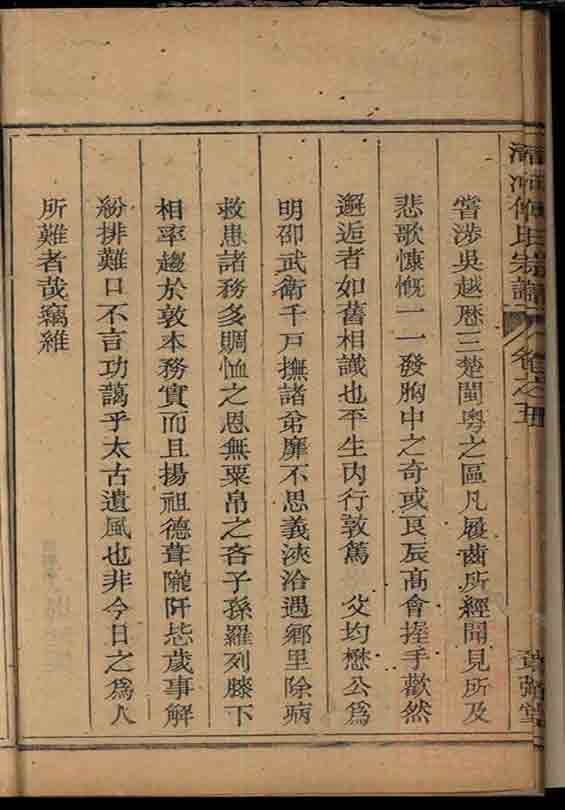 宗譜
卷之五
嘗涉吳越歷三楚閩粵之區凡履齒所經聞見所及
悲歌慷慨一一發胸中之奇或良辰高會握手歡然
邂逅者如舊相識也平生內行敦篤 父均懋公爲
明邵武衛千戸撫諸弟靡不思義浹洽遇鄉里除病
救患諸務多賙恤之恩無粟帛之吝子孫羅列膝下
相率趨於敦本務實而且揚祖德葺隴阡恷歲事解
紛排難口不言功藹乎太古遺風也非今日之爲人
所難者哉竊維